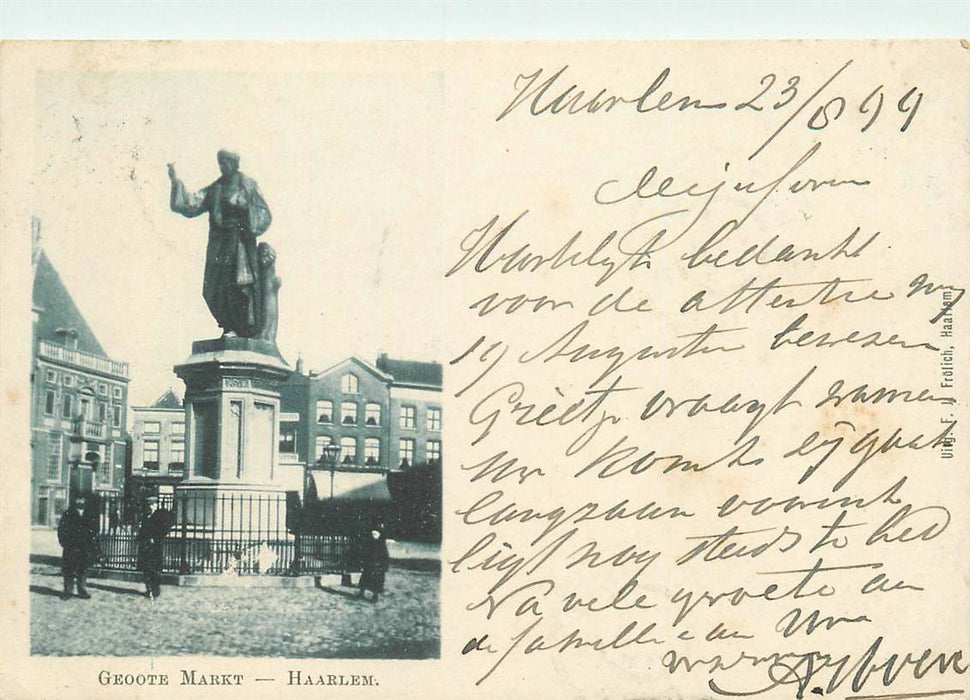 Haarlem 23/8 99
Mejufvrouw
Hartelijk bedankt
voor de attentie my
19 Augustus bewezen
Greetje vraagt
komt zij gaat
langzaam vooruit
ligt nog steeds te bed
Na vele groete aan
de familie en aan
Uitg. F. J. Frölich, Haarlem.
GEOOTE MARKT — HAARLEM.